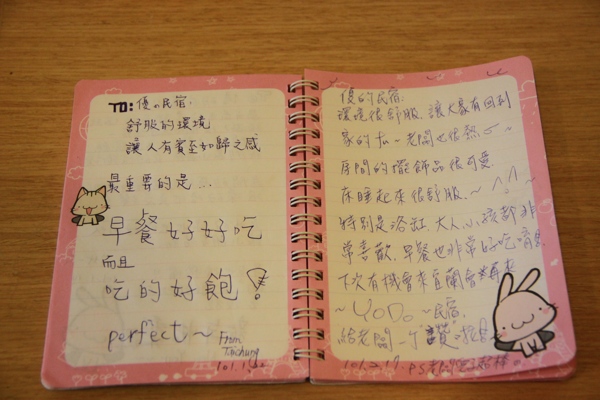 TO: 優の民宿.
舒服的環境
讓人有賓至如歸之感
最重要的是...
早餐好好吃
而且
吃的好飽!
perfect~
From Taichung
優的民宿.
環境很舒服.讓大家有回到
家的
老闆也很熱
房間的擺飾品很可愛.
床睡起來很舒服.~^.^~
特別是浴缸.大人.小孩都非
常喜歡.早餐也非常好吃
下次有機會來宜蘭會再來
~YODO~民宿.
給老闆一個"讚"
101.2.17. P.S